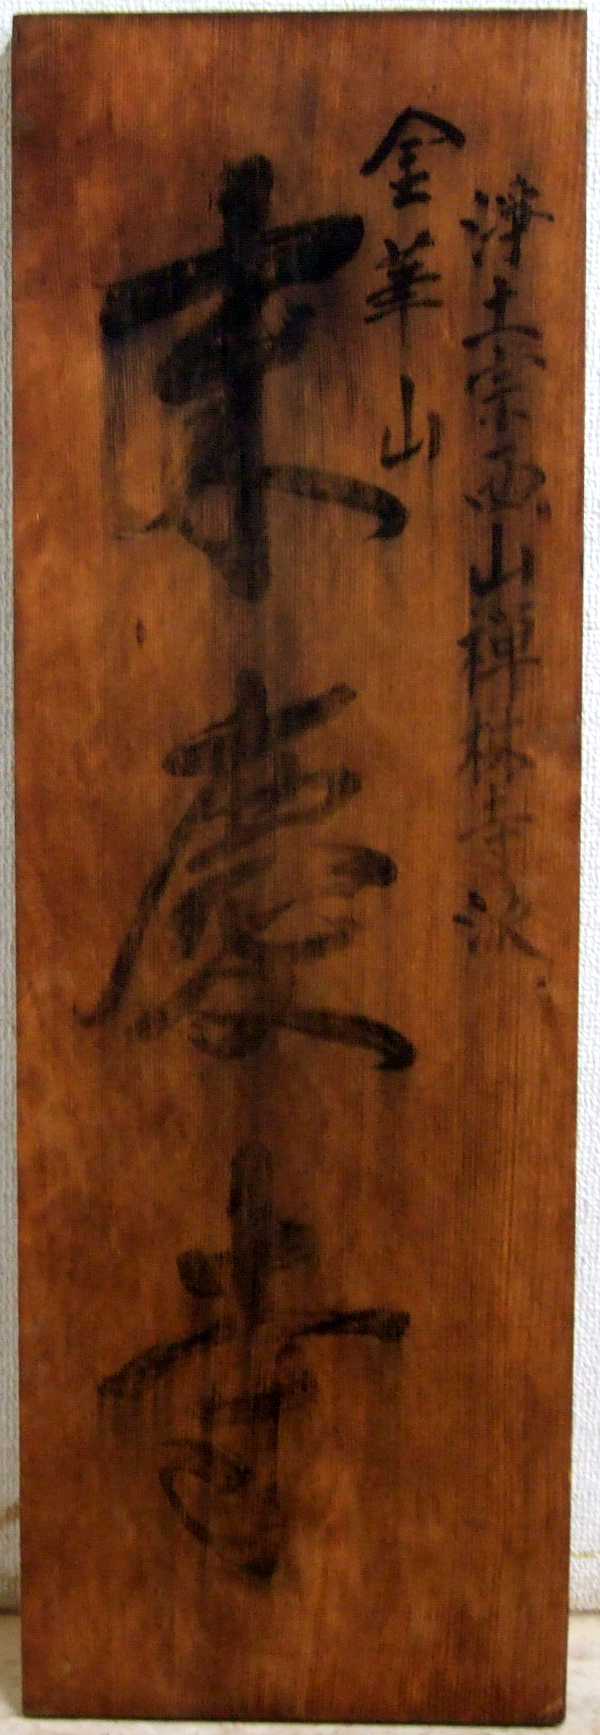 浄土宗西山禅林寺派
金華山
東慶寺